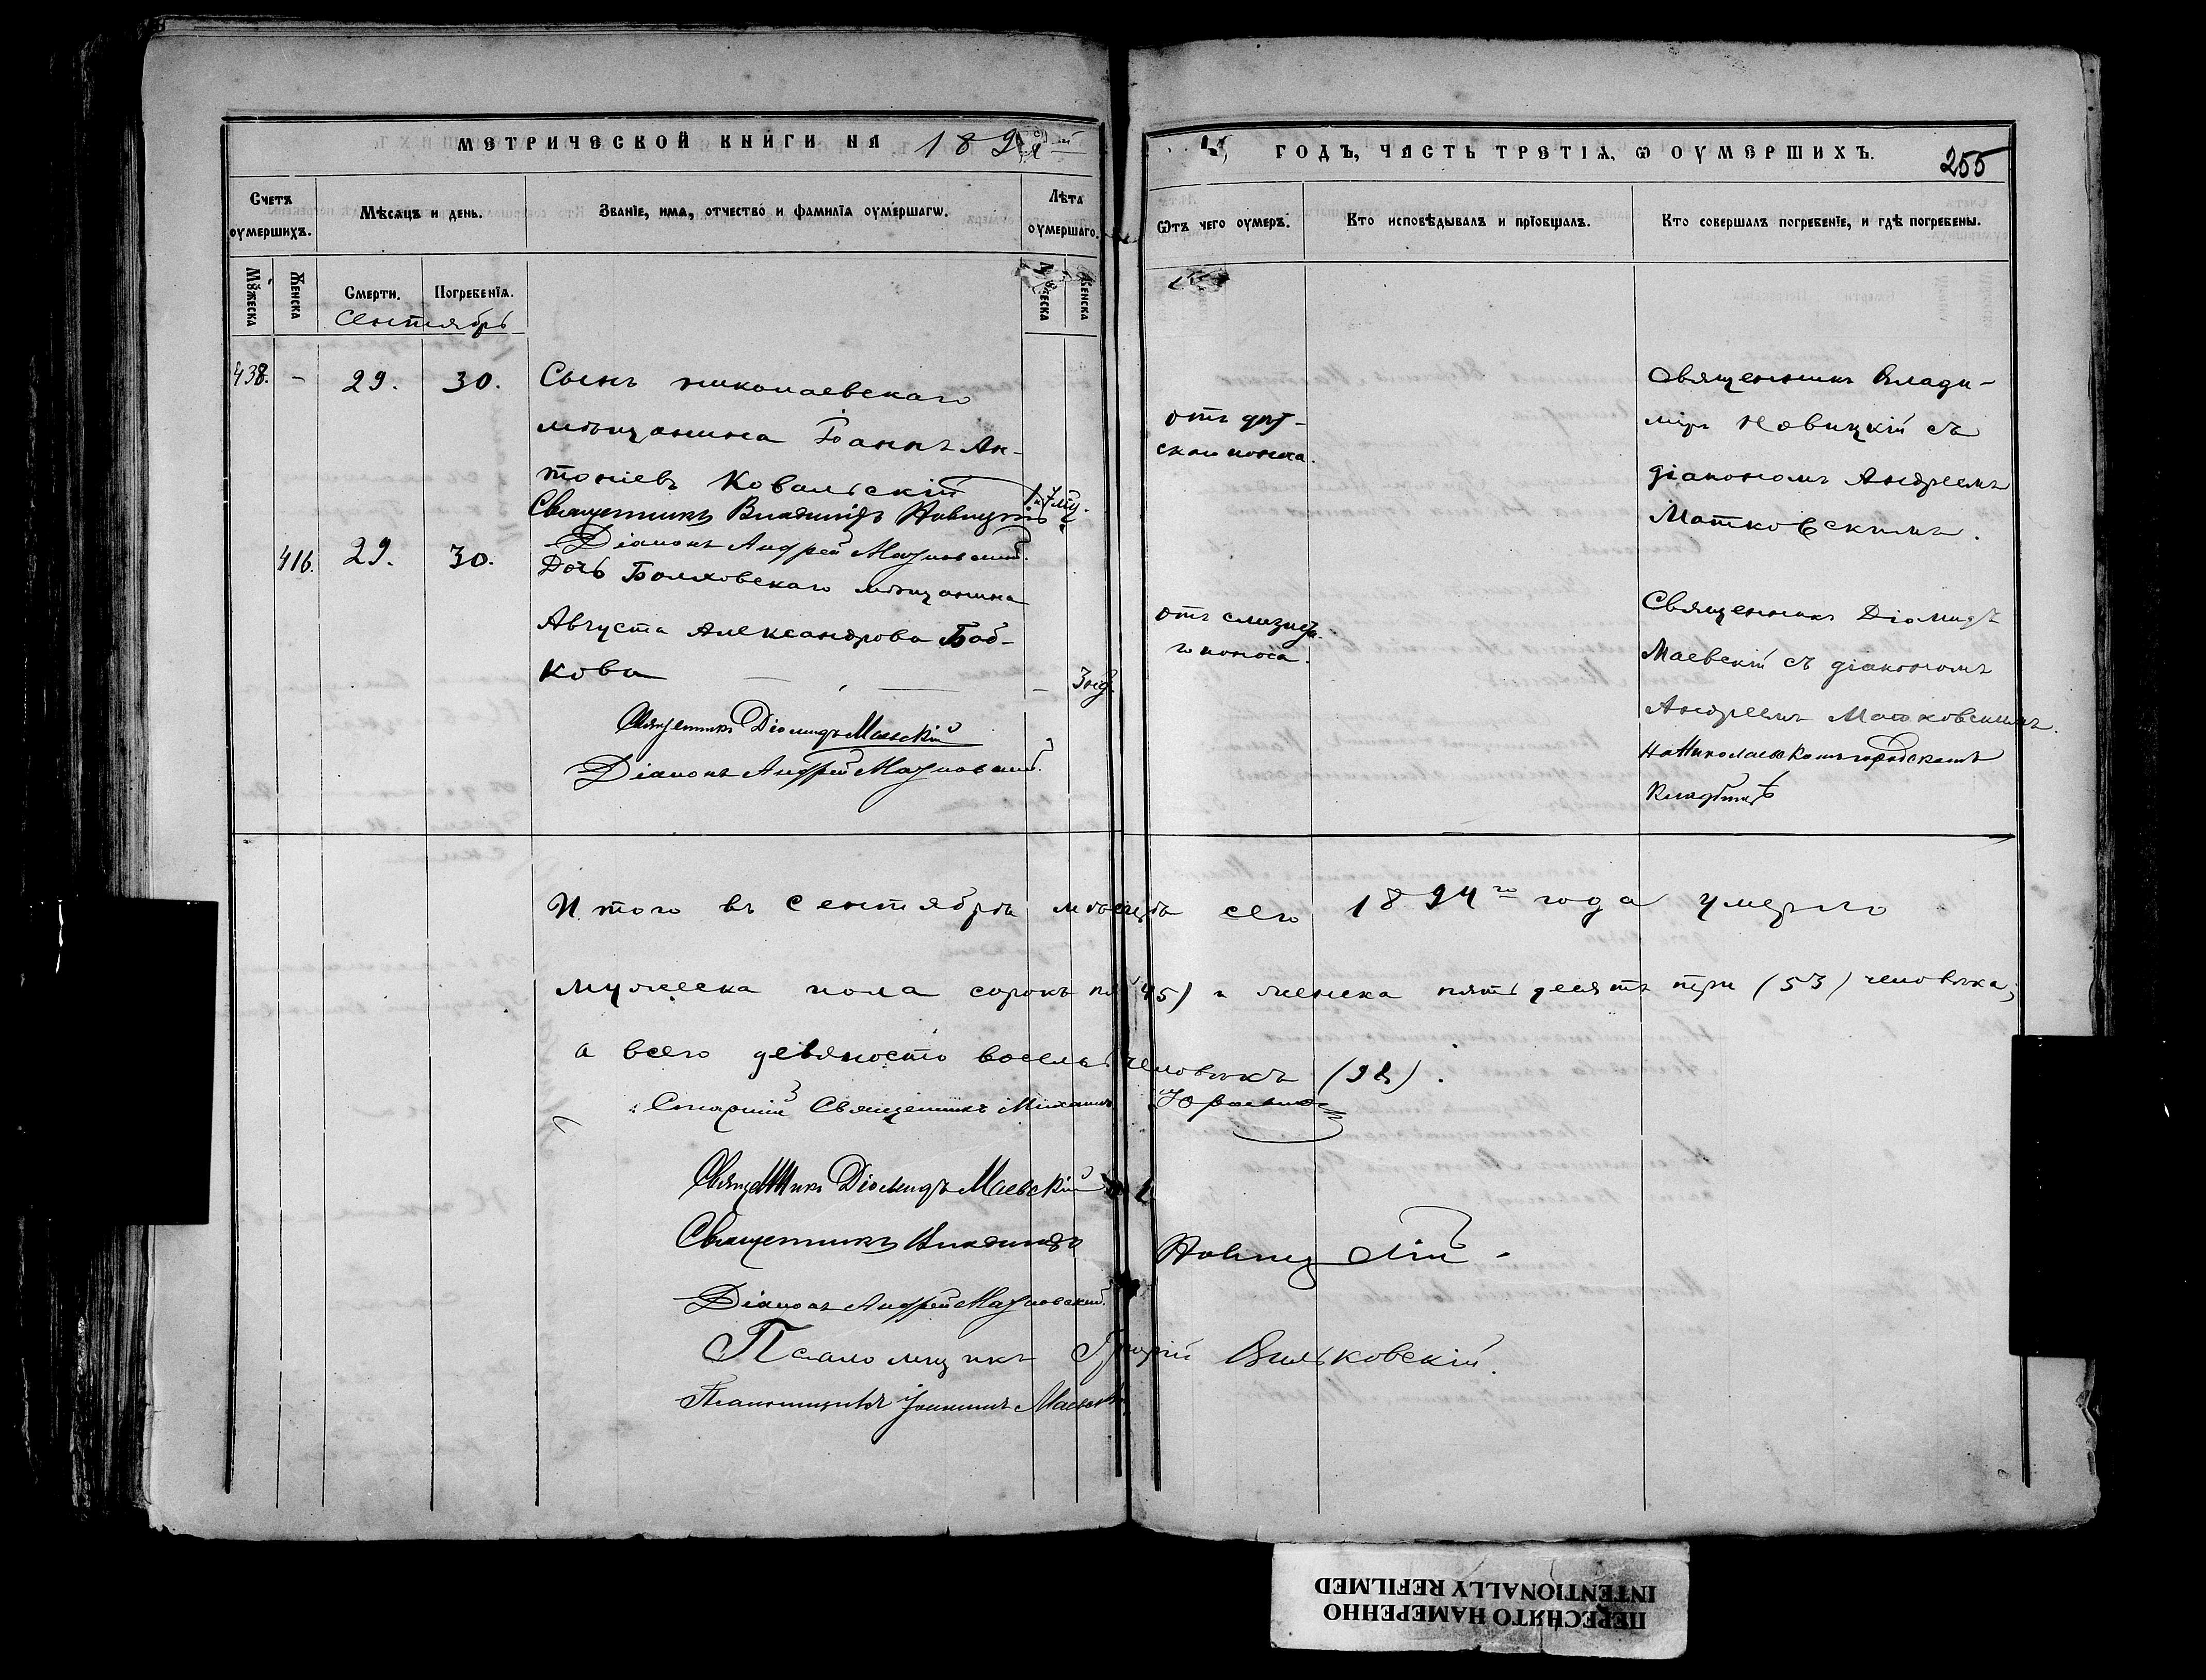 МЕТРИЧЕСКОЙ КНИГИ НА 1894й
ГОДЪ, ЧАСТЬ ТРЕТІЯ, Ѡ ОУМЕРШИХЪ.
255
Счетъ оумершихъ.
Мѣсяцъ и день.
Званїе, имя, отчество и фамилїя оумершагѡ.
Лѣта оумершаго.
Ѿтъ чего оумеръ.
Кто исповѣдывалъ и прїобщалъ.
Кто совершалъ погребенїе, и гдѣ погребены.
Мꙋжеска
Женска
Смерти.
Погребенїя.
Женска
Сентябрь
438. - 29. 30.
Сынъ николаевскаго
мѣщанина Іоаннъ Ан-
тоніевъ Ковальскій
1 и 7 мц.
Священникъ Владиміръ Новицкій
Діаконъ Андрей Матковскій.
отъ дѣт-
скаго поноса.
Священникъ Влади-
міръ Новицкій съ
діакономъ Андреемъ
Матковскимъ.
416. 29. 30.
Дочь Болховскаго мѣщанина
Августа Александрова Баб-
кова
3 нд.
Священникъ Діомидъ Маевскій
Діаконъ Андрей Матковскій.
отъ слизист.
го поноса.
Священникъ Діомидъ
Маевскій съ діакономъ
Андреемъ Матковскимъ.
на Николаевскомъ городскомъ
Кладбищѣ
Итого въ Сентябрѣ мѣсяцѣ сего 1894го года умерло
мужеска пола сорокъ пя 45) и женска пятьдесятъ три (53) человѣка;
а всего девяносто восемь человѣкъ (98).
Старшій Священникъ Михаилъ
Священникъ Діомидъ Маевскій
Священникъ Владиміръ Новицкій -
Діаконъ Андрей Матковскій.
Псаломщикъ Григорій Вильковскій.
Псаломщикъ Іоаннъ
ПЕРЕСНЯТО НАМЕРЕННО
INTENTIONALLY REFILMED